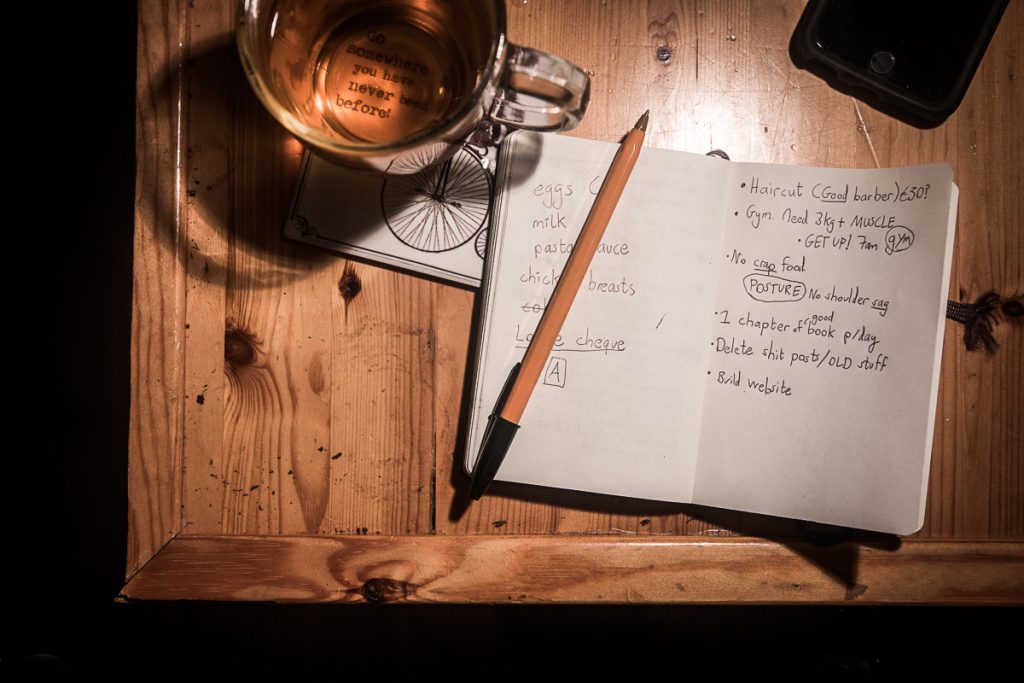 Go
somewhere
you have
never been
before!
eggs (
milk
pasta sauce
chicken breasts
cheque
A
• Haircut (Good barber) €30?
• Gym. Need 3kg+ MUSCLE
• GET UP! 7am gym
• No crap food
POSTURE No shoulder sag
• 1 chapter of good book p/day
• Delete shit posts/OLD stuff
• Build website